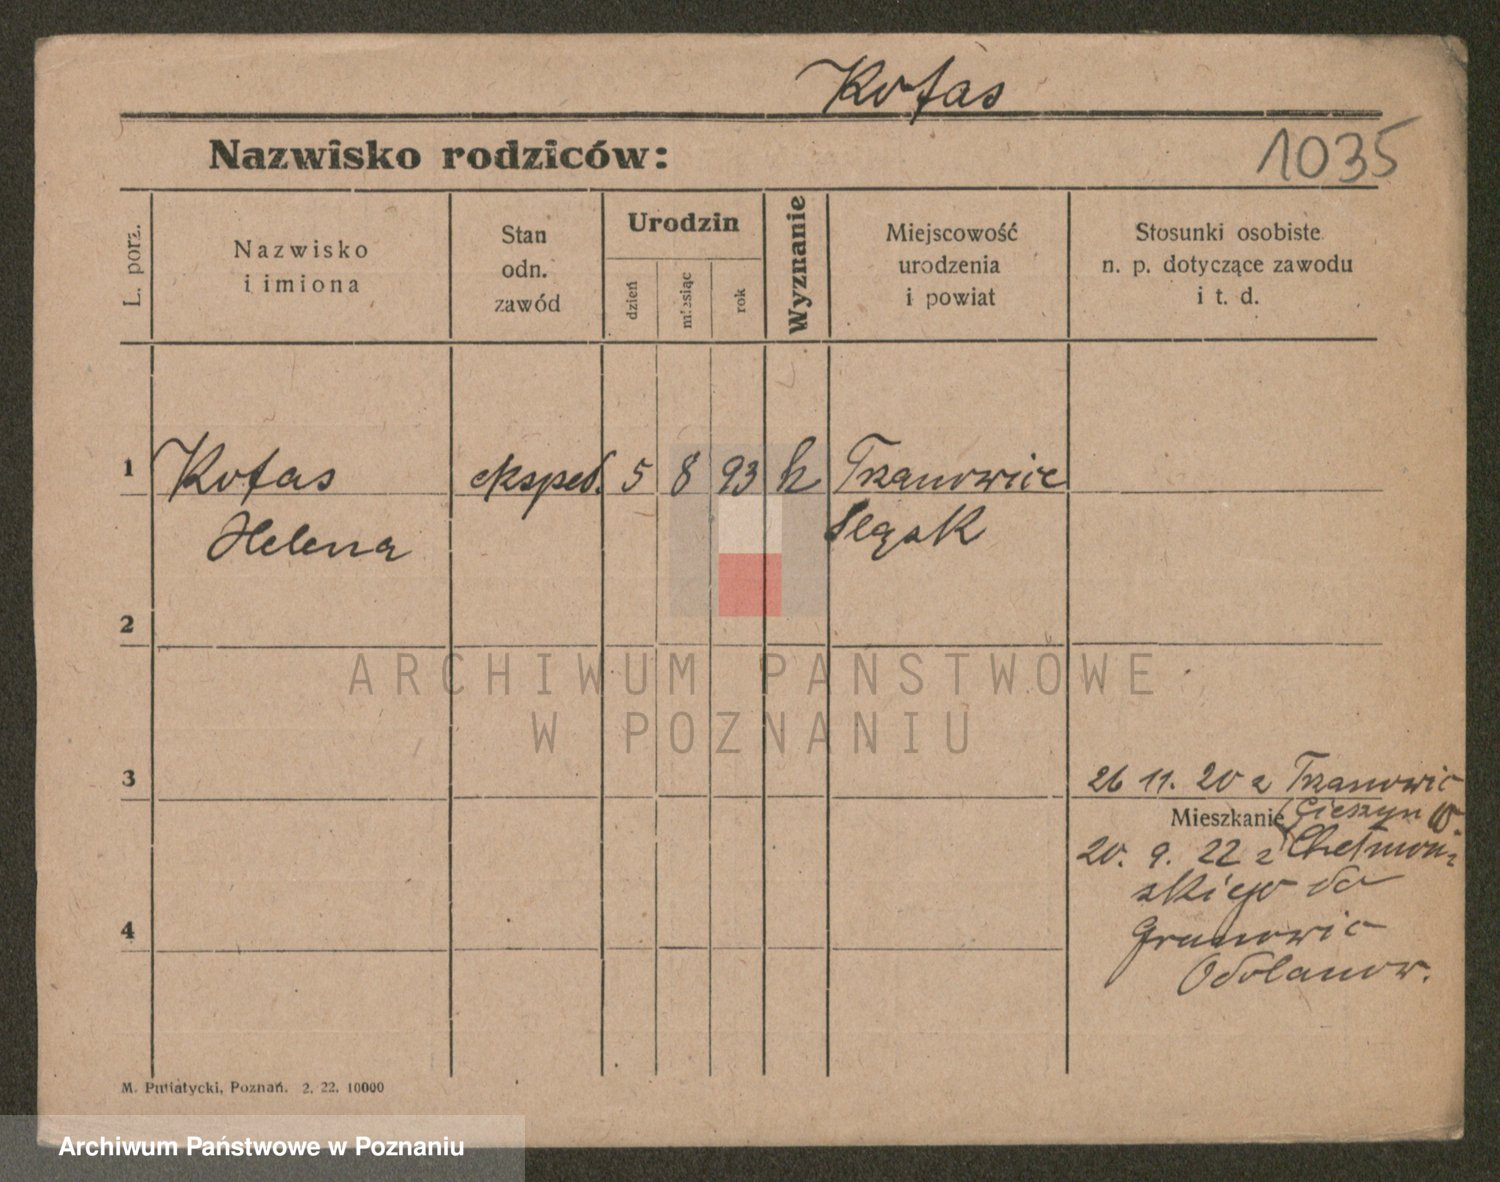 Kotas
Nazwisko rodziców:
1035
L. porz.
Nazwisko
i imiona
Stan
odn.
zawód
Urodzin
dzień
miesiąc
rok
Wyznanie
Miejscowość
urodzenia
i powiat
Stosunki osobiste
n. p. dotyczące zawodu
i t. d.
1
Kotas
eksped.
5
8
93
k
Trzanowice
Helena
Śląsk
2
ARCHIWUM PAŃSTWOWE
W POZNANIU
3
26 11. 20 z Trzanowic
Mieszkanie
Cieszyn
20. 9. 22 z Chełmoń
skiego do
Granowic
Odolanow.
4
M. Putiatycki, Poznań. 2. 22. 10000
Archiwum Państwowe w Poznaniu